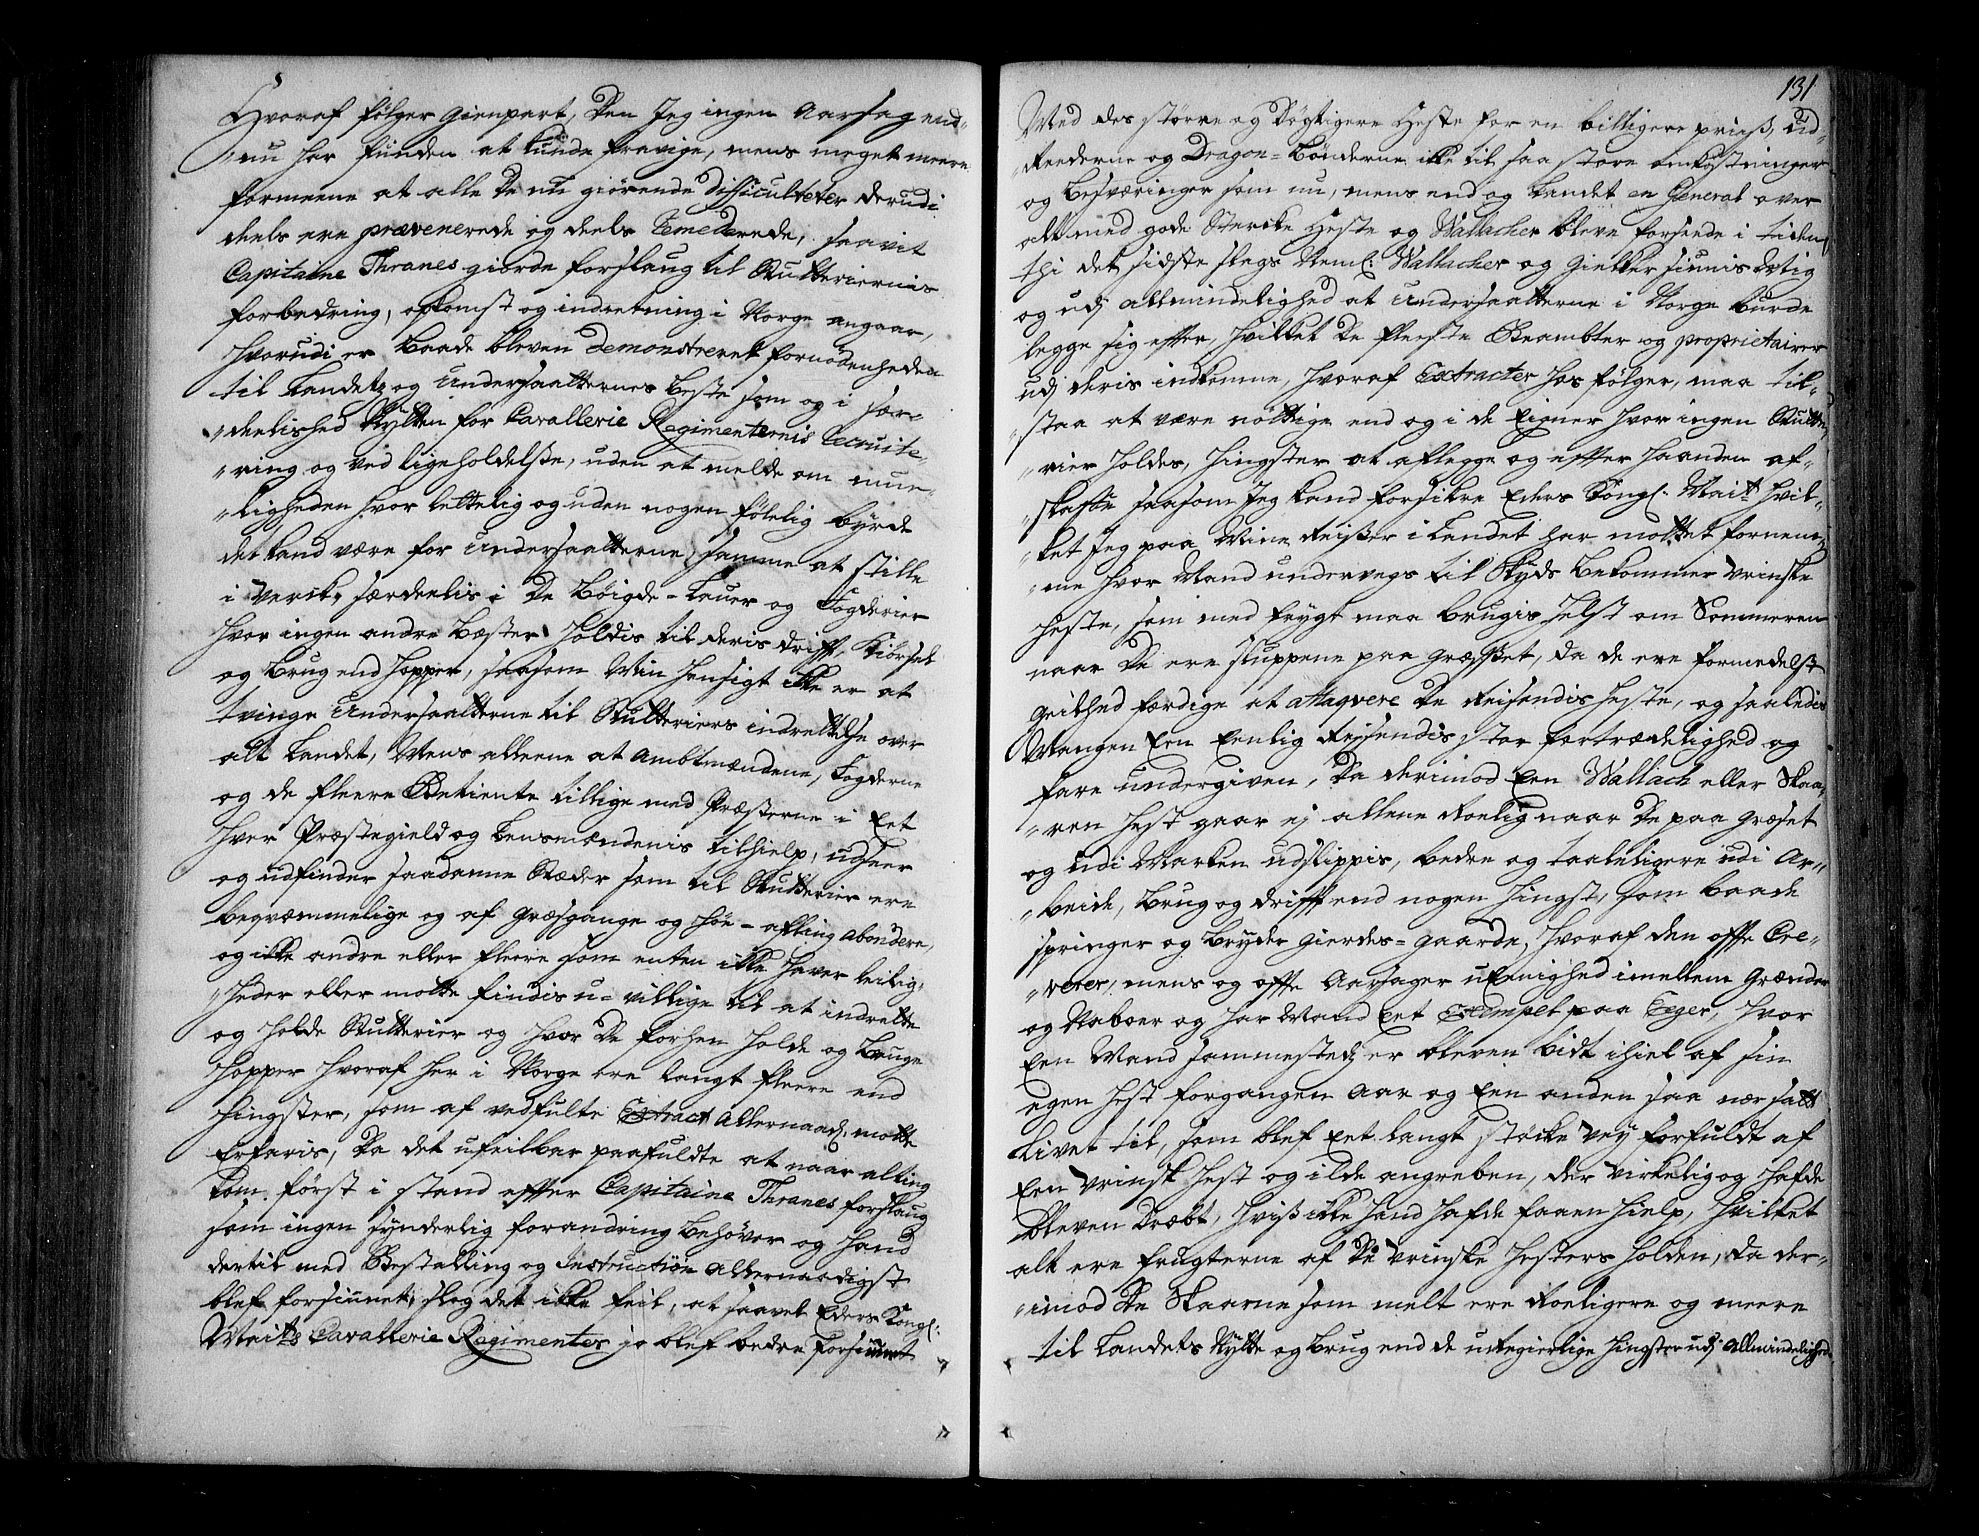 Hvoraf følger Gienpart, Den Jeg ingen Aarsag end„
„nu har funden at kunde fravige, mens meget meere
formeene at alle De nu giørende Difficulteter derudi
deels ere prævenerede og deels Remederede, saavit
Capitaine Thranes giorde forslaug til Stutteriernis
forbedring, opkomst og indretning i Norge angaar,
hvorudi er baade bleven Demonstreret fornødenheden
til Landetz og Undersaatternes beste som og i sær„
„deelished Nytten for Cavallerie Regimenternis Recruite„
„ring og ved ligeholdelse, uden at melde om mue„
„ligheden hvor lettelig og uden nogen følelig byrde
det kand være for Undersaatterne, samme at stille
i Verck, særdeelis i De Bøigde-Lauer og Fogderier
hvor ingen andre bæster holdis til deris drifft, Kiørsel
og brug end hopper, saasom Min hensigt ikke er at
tvinge Undersaatterne til Stutteriers indrettelse over
alt Landet, Mens alleene at Ambtmændene, Fogderne
og de fleere Betiente tillige med Præsterne i Eet
hver Præstegield og Lensmændenis tilhielp, udseer
og udfinder saadanne Stæder som til Stutterier ere
begvæmmelige og af Græsgange og høe-afling abondere,
og ikke andre eller fleere som enten ikke haver leilig„
„heder eller motte findis u-villige til at indrette
og holde Stutterier og hvor De forhen holde og bruge
hopper hvoraf her i Norge ere langt fleere end
hingster, som af vedfulte Extract Allernaad. motte
Erfaris, Da det ufeilbar paafuldte at naar alting
kom først i stand efter Capitaine Thranes forslaug
som ingen synderlig forandring behøver og hand
dertil med Bestalling og Instruction Allernaadigst
blef forsiunet, slog det ikke feil, at saavel Eders Kongl:
Maits Cavallerie Regimenter jo blef bedre forsiunet
131
Med des større og Døgtigere Heste for en billigere priis, Ud„
„Reederne og Dragon-bønderne ikke til saa store omkostninger
og besværinger som nu, mens end og Landet en General over
alt med gode Stercke Heste og Wallacher bleve forseede i tiden,
thi det sidste slags Neml. Wallacher og Gielker siunis Retig
og udj allmindelighed at Undersaatterne i Norge burde
legge sig efter, hvilket De fleeste Beambter og proprietairer
udj deris indkomne, hvoraf Extracter hos følger, maa til„
„staa at være nøttige end og i de Eigner hvor ingen Stutte„
„rier holdes, hingster at aflegge og efter haanden af„
„skaffe saasom Jeg kand forsikre Eders Kongl. Maitt hvil„
„ket Jeg paa Mine Reiser i Landet har mottet fornem„
„me hvor Mand undervegs til Skyds bekommer Vrinske
heste, som med frygt maa brugis helst om Sommeren
naar De ere sluppene paa Græsset, da de ere formedelst
Geilhed færdige at attaqvere De Reisendis heste, og saaledis
Mangen Een Eenlig Reisendis stor fortrædelighed og
fare undergiven, Da derimod Een Wallach eller Skaa„
„ren hest gaar ej allene Roelig naar De paa Græset
og udi Marken udslippis, bedre og taaleligere udi Ar„
„beide, brug og drifft end nogen hingst, som baade
springer og bryder Gierdes-gaarde, hvoraf den offte Cre„
„verer, mens og offte Aarsager uEenighed imellem Grænder
og Naboer og har Mand Eet Exempel paa Eger, hvor
Een Mand sammestedz er bleven bidt ihiel af sin
egen hest forgangen Aar og Een anden saa nær satt
Livet til, som blef Eet langt støcke Vey forfuldt af
Een Vrinsk hest og ilde angreben, der Virkelig og hafde
bleven Dræbt, hvis ikke hand hafde faaen hielp, hvilket
alt ere frugterne af De Vrinske hesters holden, da der„
„imod De Skaarne som melt ere Roeligere og meere
til Landets Nytte og brug end de uregierlige hingster udj Allmindelighed